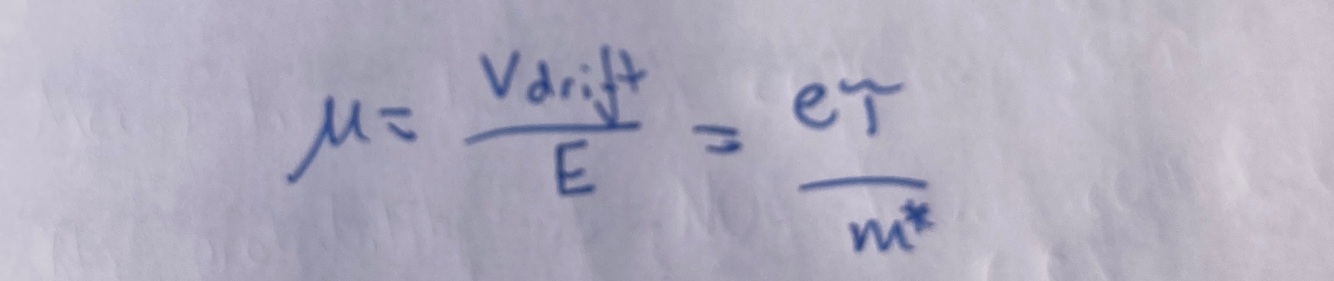 μ = Vdrift / E = eτ / m*